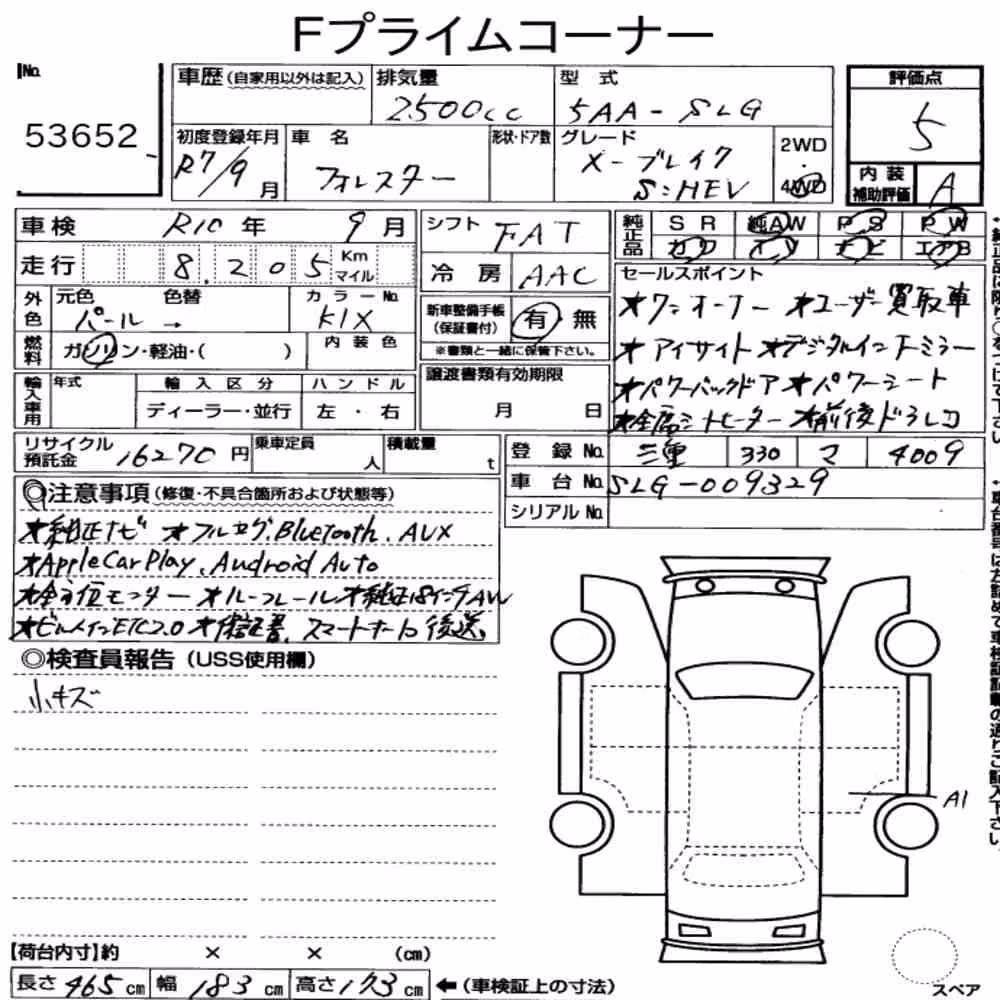 Fプライムコーナー
No.
53652
車歴(自家用以外は記入)
排気量
2500cc
型式
5AA-SLG
評価点
5
初度登録年月
R7/9月
車名
フォレスター
形状・ドア数
グレード
X-ブレイク
S:HEV
2WD
・
4WD
内装
補助評価
A
車検 R10年 9月
シフト FAT
純正品
SR 純AW PS PW
カワ TV ナビ エアB
走行 8,205 Km マイル
冷房 AAC
セールスポイント
外色
元色 色替
パール →
カラーNo.
K1X
新車整備手帳
(保証書付)
有・無
※書類と一緒に保管下さい。
★ワンオーナー ★ユーザー買取車
★アイサイト ★デジタルインナーミラー
★パワーバックドア ★パワーシート
★全席シートヒーター ★前後ドラレコ
燃料
ガソリン・軽油・( )
内装色
輸入車用
年式
輸入区分
ディーラー・並行
ハンドル
左・右
譲渡書類有効期限
月 日
リサイクル
預託金
16270円
乗車定員
人
積載量
t
登録No. 三重 330 マ 4009
車台No. SLG-009329
シリアルNo.
◎注意事項(修復・不具合箇所および状態等)
★純正ナビ ★フルセグ.Bluetooth.AUX
★AppleCarPlay、Android Auto
★全方位モニター ★ルーフレール ★純正18インチAW
★ビルトインETC2.0 ★保証書、スマートキー1コ後送
◎検査員報告(USS使用欄)
小キズ
A1
【荷台内寸】約 × × (cm)
長さ465cm 幅183cm 高さ173cm ←(車検証上の寸法)
スペア
↑純正品は限り○をつけて下さい
↑車台番号は左詰めで車検証記載の通りご記入下さい。